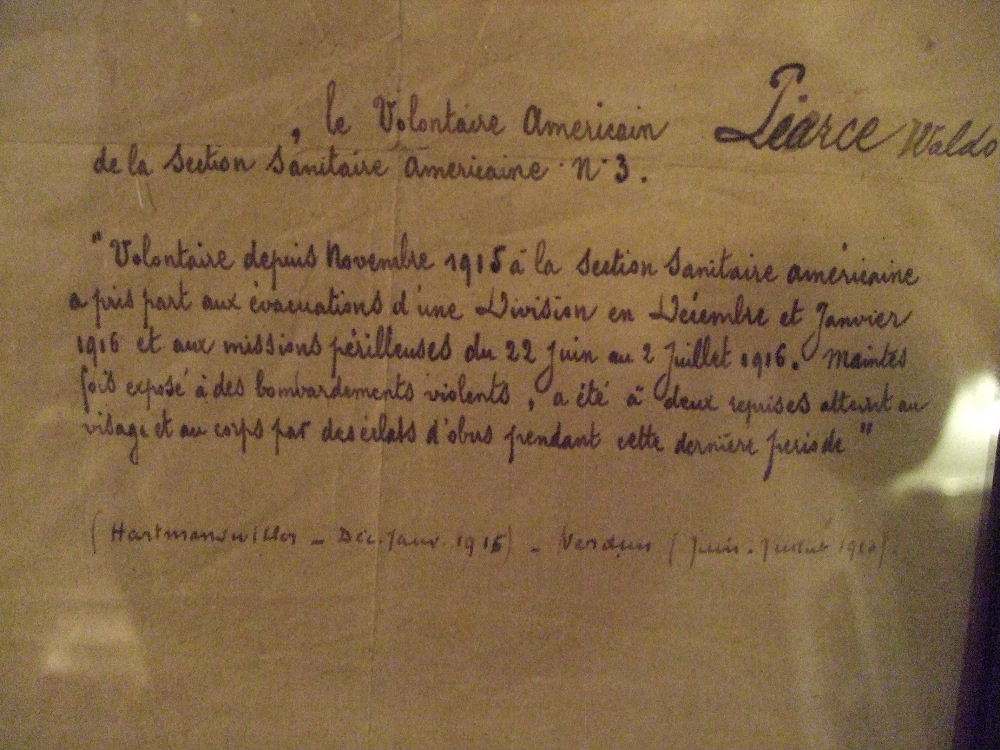 , le Volontaire Américain Piarce Waldo
de la Section Sanitaire Américaine N° 3.
"Volontaire depuis Novembre 1915 à la Section Sanitaire américaine
a pris part aux évacuations d'une Division en Décembre et Janvier
1916 et aux missions périlleuses du 22 Juin au 2 Juillet 1916. Maintes
fois exposé à des bombardements violents, a été à deux reprises atteint au
visage et au corps par des éclats d'obus pendant cette dernière periode"
(Hartmanswiller - Déc. Janv. 1916) - Verdun (Juin - Juillet 1916).